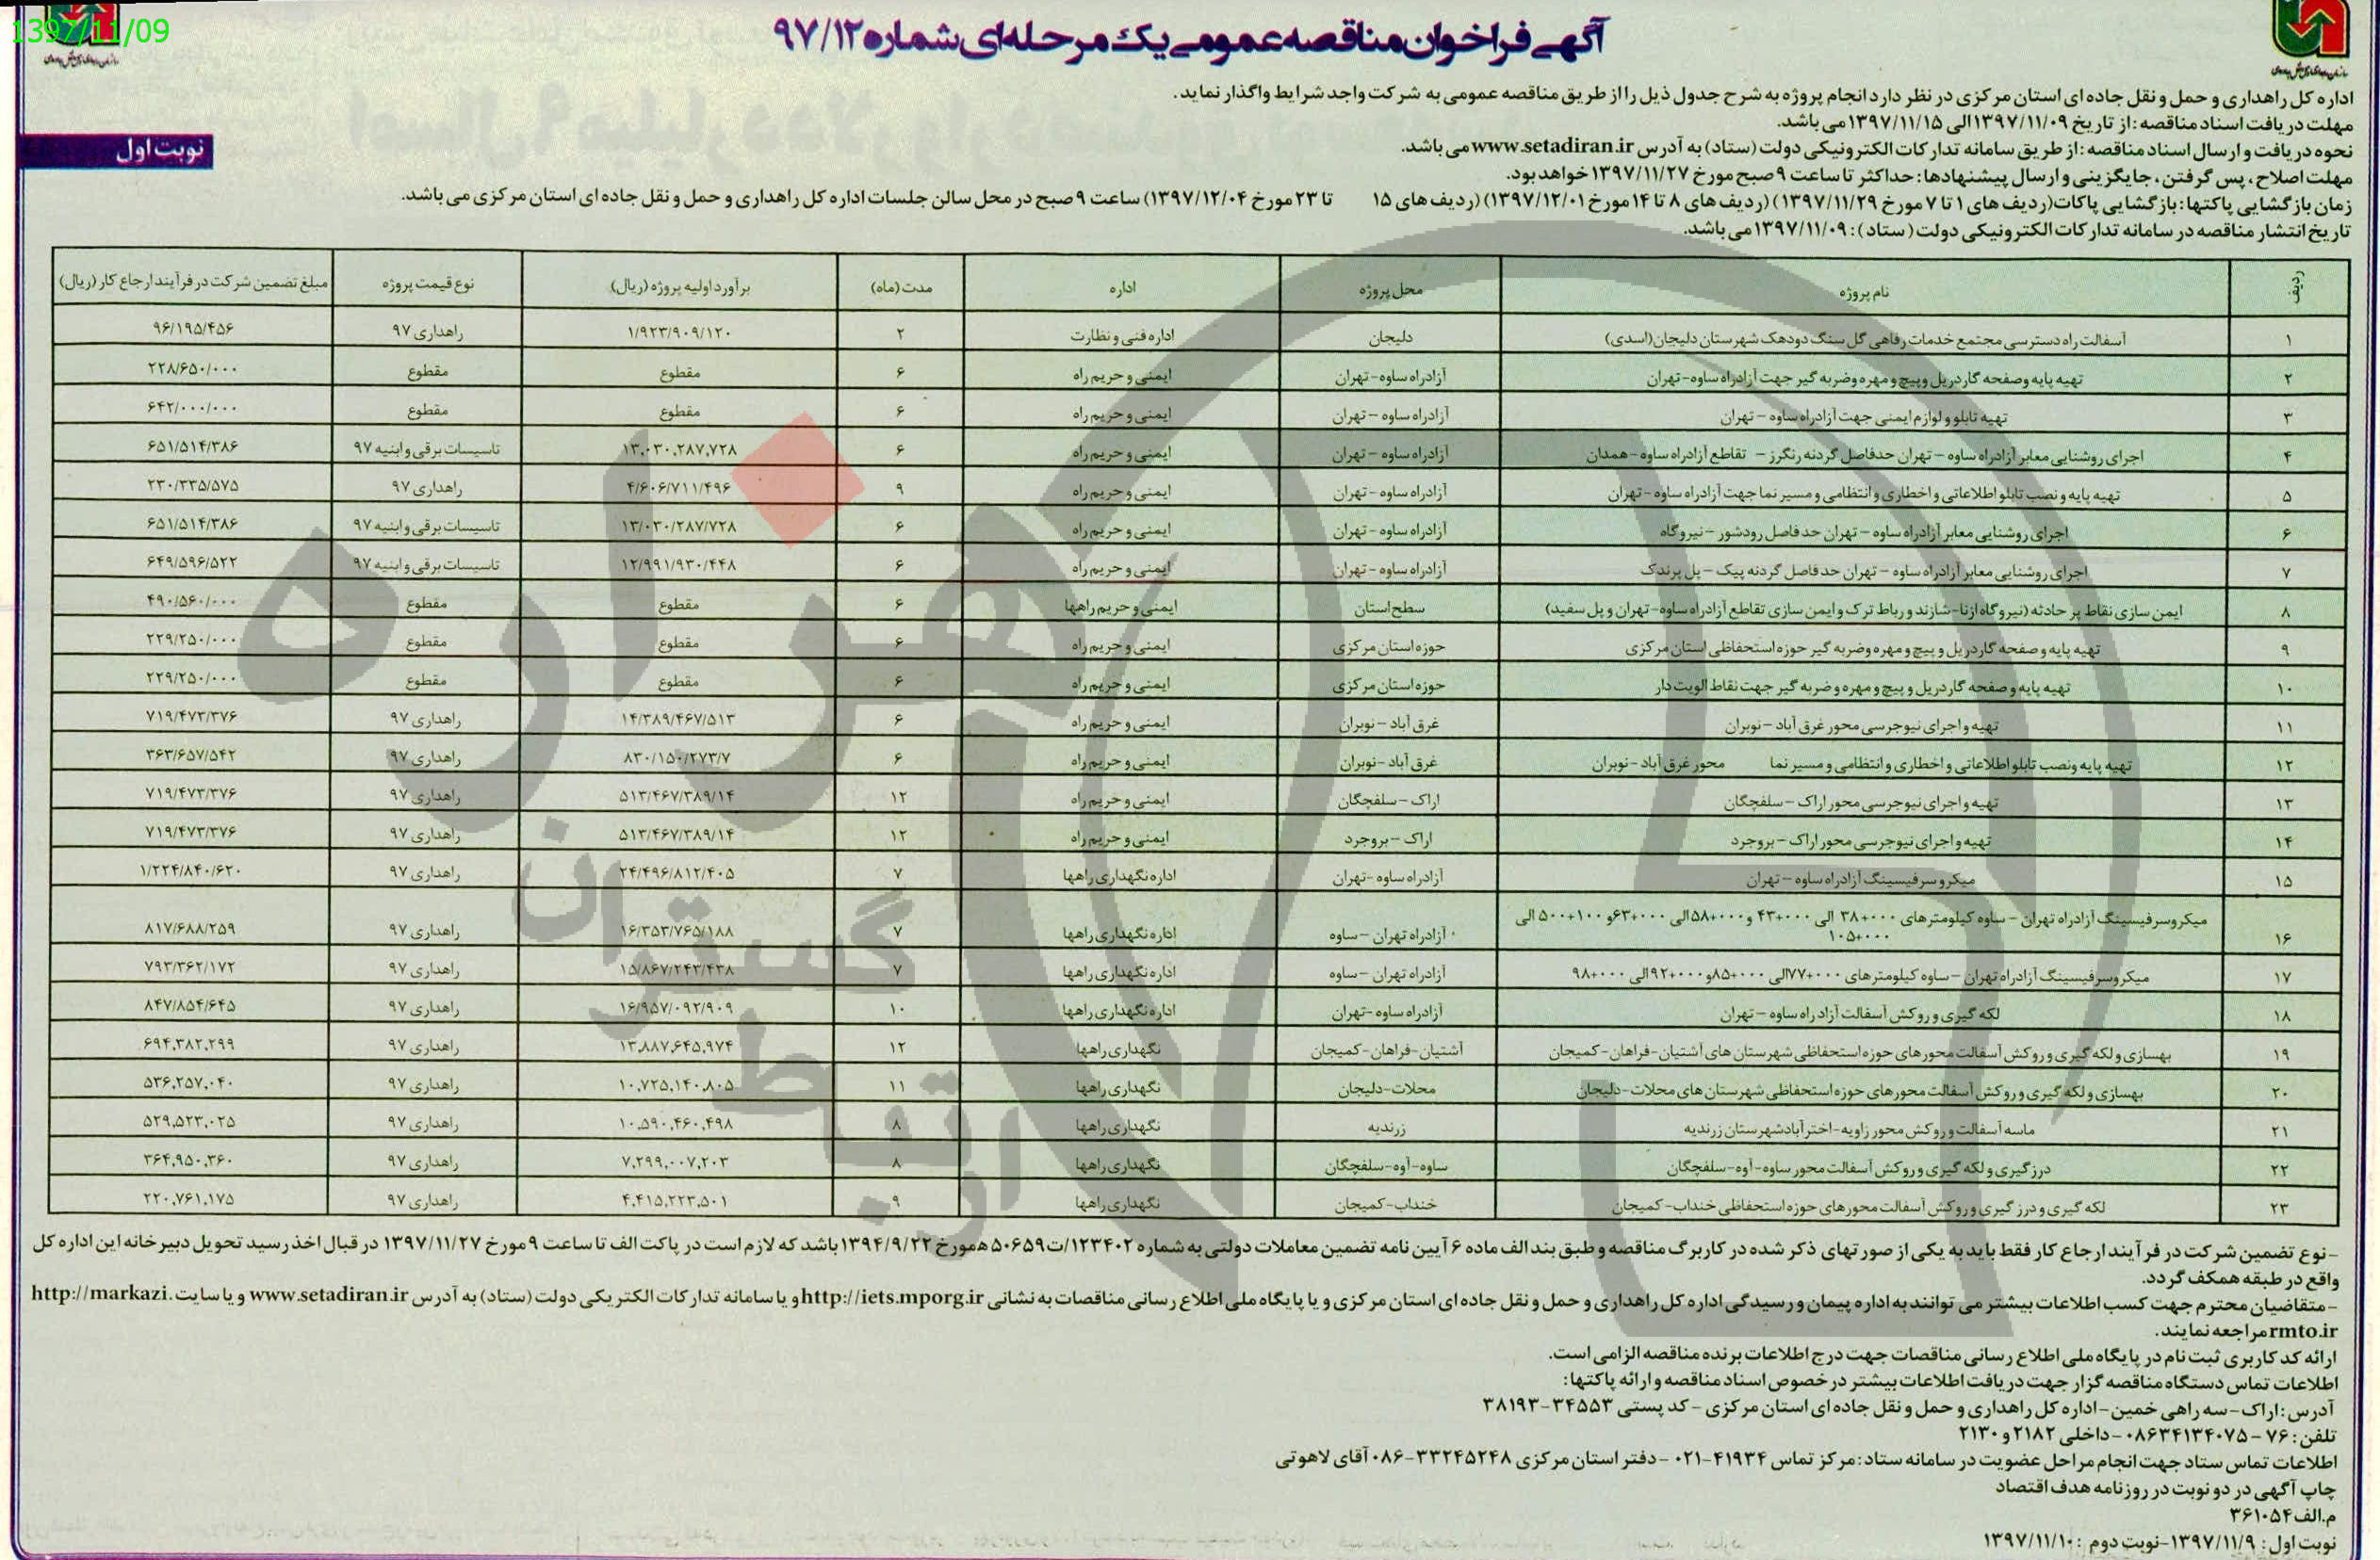 1397/11/09
آگهی فراخوان مناقصه عمومی یک مرحله‌ای شماره ۹۷/۱۲
نوبت اول
اداره کل راهداری و حمل و نقل جاده ای استان مرکزی در نظر دارد انجام پروژه به شرح جدول ذیل را از طریق مناقصه عمومی به شرکت واجد شرایط واگذار نماید.
مهلت دریافت اسناد مناقصه: از تاریخ ۱۳۹۷/۱۱/۰۹ الی ۱۳۹۷/۱۱/۱۵ می باشد.
نحوه دریافت و ارسال اسناد مناقصه: از طریق سامانه تدارکات الکترونیکی دولت (ستاد) به آدرس www.setadiran.ir می باشد.
مهلت اصلاح، پس گرفتن، جایگزینی و ارسال پیشنهادها: حداکثر تا ساعت ۹ صبح مورخ ۱۳۹۷/۱۱/۲۷ خواهد بود.
زمان بازگشایی پاکتها: بازگشایی پاکات (ردیف های ۱ تا ۷ مورخ ۱۳۹۷/۱۱/۲۹) (ردیف های ۸ تا ۱۴ مورخ ۱۳۹۷/۱۲/۰۱) (ردیف های ۱۵ تا ۲۳ مورخ ۱۳۹۷/۱۲/۰۴) ساعت ۹ صبح در محل سالن جلسات اداره کل راهداری و حمل و نقل جاده ای استان مرکزی می باشد.
تاریخ انتشار مناقصه در سامانه تدارکات الکترونیکی دولت (ستاد): ۱۳۹۷/۱۱/۰۹ می باشد.
ردیف نام پروژه محل پروژه اداره مدت (ماه) برآورد اولیه پروژه (ریال) نوع قیمت پروژه مبلغ تضمین شرکت در فرآیند ارجاع کار (ریال)
۱ آسفالت راه دسترسی مجتمع خدمات رفاهی گل سنگ دودهک شهرستان دلیجان (اسدی) دلیجان اداره فنی و نظارت ۲ ۱/۹۲۳/۹۰۹/۱۲۰ راهداری ۹۷ ۹۶/۱۹۵/۴۵۶
۲ تهیه پایه و صفحه گاردریل و پیچ و مهره و ضربه گیر جهت آزادراه ساوه-تهران آزادراه ساوه-تهران ایمنی و حریم راه ۶ مقطوع مقطوع ۲۲۸/۶۵۰/۰۰۰
۳ تهیه تابلو و لوازم ایمنی جهت آزادراه ساوه - تهران آزادراه ساوه - تهران ایمنی و حریم راه ۶ مقطوع مقطوع ۶۴۲/۰۰۰/۰۰۰
۴ اجرای روشنایی معابر آزادراه ساوه - تهران حدفاصل گردنه رنگرز - تقاطع آزادراه ساوه-همدان آزادراه ساوه - تهران ایمنی و حریم راه ۶ ۱۳,۰۳۰,۲۸۷,۷۲۸ تاسیسات برقی و ابنیه ۹۷ ۶۵۱/۵۱۴/۳۸۶
۵ تهیه پایه و نصب تابلو اطلاعاتی و اخطاری و انتظامی و مسیر نما جهت آزادراه ساوه-تهران آزادراه ساوه-تهران ایمنی و حریم راه ۹ ۴/۶۰۶/۷۱۱/۴۹۶ راهداری ۹۷ ۲۳۰/۳۳۵/۵۷۵
۶ اجرای روشنایی معابر آزادراه ساوه - تهران حدفاصل رودشور - نیروگاه آزادراه ساوه - تهران ایمنی و حریم راه ۶ ۱۳/۰۳۰/۲۸۷/۷۲۸ تاسیسات برقی و ابنیه ۹۷ ۶۵۱/۵۱۴/۳۸۶
۷ اجرای روشنایی معابر آزادراه ساوه - تهران حدفاصل گردنه پیک - پل پرندک آزادراه ساوه - تهران ایمنی و حریم راه ۶ ۱۲/۹۹۱/۹۳۰/۴۴۸ تاسیسات برقی و ابنیه ۹۷ ۶۴۹/۵۹۶/۵۲۲
۸ ایمن سازی نقاط پر حادثه (نیروگاه ازنا-شازند و رباط ترک و ایمن سازی تقاطع آزادراه ساوه-تهران و پل سفید) سطح استان ایمنی و حریم راهها ۶ مقطوع مقطوع ۴۹۰/۵۶۰/۰۰۰
۹ تهیه پایه و صفحه گاردریل و پیچ و مهره و ضربه گیر حوزه استحفاظی استان مرکزی حوزه استان مرکزی ایمنی و حریم راه ۶ مقطوع مقطوع ۲۲۹/۲۵۰/۰۰۰
۱۰ تهیه پایه و صفحه گاردریل و پیچ و مهره و ضربه گیر جهت نقاط الویت دار حوزه استان مرکزی ایمنی و حریم راه ۶ مقطوع مقطوع ۲۲۹/۲۵۰/۰۰۰
۱۱ تهیه و اجرای نیوجرسی محور غرق آباد - نوبران غرق آباد - نوبران ایمنی و حریم راه ۶ ۱۴/۳۸۹/۴۶۷/۵۱۳ راهداری ۹۷ ۷۱۹/۴۷۳/۳۷۶
۱۲ تهیه پایه و نصب تابلو اطلاعاتی و اخطاری و انتظامی و مسیر نما محور غرق آباد - نوبران غرق آباد - نوبران ایمنی و حریم راه ۶ ۸۳۰/۱۵۰/۲۷۳/۷ راهداری ۹۷ ۳۶۳/۶۵۷/۵۴۲
۱۳ تهیه و اجرای نیوجرسی محور اراک - سلفچگان اراک - سلفچگان ایمنی و حریم راه ۱۲ ۵۱۳/۴۶۷/۳۸۹/۱۴ راهداری ۹۷ ۷۱۹/۴۷۳/۳۷۶
۱۴ تهیه و اجرای نیوجرسی محور اراک - بروجرد اراک - بروجرد ایمنی و حریم راه ۱۲ ۵۱۳/۴۶۷/۳۸۹/۱۴ راهداری ۹۷ ۷۱۹/۴۷۳/۳۷۶
۱۵ میکروسرفیسینگ آزادراه ساوه - تهران آزادراه ساوه - تهران اداره نگهداری راهها ۷ ۲۴/۴۹۶/۸۱۲/۴۰۵ راهداری ۹۷ ۱/۲۲۴/۸۴۰/۶۲۰
۱۶ میکروسرفیسینگ آزادراه تهران - ساوه کیلومترهای ۳۸+۰۰۰ الی ۴۳+۰۰۰ و ۵۸+۰۰۰ الی ۶۳+۰۰۰ و ۱۰۰+۵۰۰ الی ۱۰۵+۰۰۰ آزادراه تهران - ساوه اداره نگهداری راهها ۷ ۱۶/۳۵۳/۷۶۵/۱۸۸ راهداری ۹۷ ۸۱۷/۶۸۸/۲۵۹
۱۷ میکروسرفیسینگ آزادراه تهران - ساوه کیلومترهای ۷۷+۰۰۰ الی ۸۵+۰۰۰ و ۹۲+۰۰۰ الی ۹۸+۰۰۰ آزادراه تهران - ساوه اداره نگهداری راهها ۷ ۱۵/۸۶۷/۲۴۳/۴۳۸ راهداری ۹۷ ۷۹۳/۳۶۲/۱۷۲
۱۸ لکه گیری و روکش آسفالت آزاد راه ساوه - تهران آزادراه ساوه - تهران اداره نگهداری راهها ۱۰ ۱۶/۹۵۷/۰۹۲/۹۰۹ راهداری ۹۷ ۸۴۷/۸۵۴/۶۴۵
۱۹ بهسازی و لکه گیری و روکش آسفالت محورهای حوزه استحفاظی شهرستان های آشتیان-فراهان-کمیجان آشتیان-فراهان-کمیجان نگهداری راهها ۱۲ ۱۳,۸۸۷,۶۴۵,۹۷۴ راهداری ۹۷ ۶۹۴,۳۸۲,۲۹۹
۲۰ بهسازی و لکه گیری و روکش آسفالت محورهای حوزه استحفاظی شهرستان های محلات-دلیجان محلات-دلیجان نگهداری راهها ۱۱ ۱۰,۷۲۵,۱۴۰,۸۰۵ راهداری ۹۷ ۵۳۶,۲۵۷,۰۴۰
۲۱ ماسه آسفالت و روکش محور زاویه-اخترآباد شهرستان زرندیه زرندیه نگهداری راهها ۸ ۱۰,۵۹۰,۴۶۰,۴۹۸ راهداری ۹۷ ۵۲۹,۵۲۳,۰۲۵
۲۲ درزگیری و لکه گیری و روکش آسفالت محور ساوه-آوه-سلفچگان ساوه-آوه-سلفچگان نگهداری راهها ۸ ۷,۲۹۹,۰۰۷,۲۰۳ راهداری ۹۷ ۳۶۴,۹۵۰,۳۶۰
۲۳ لکه گیری و درز گیری و روکش آسفالت محورهای حوزه استحفاظی خنداب-کمیجان خنداب-کمیجان نگهداری راهها ۹ ۴,۴۱۵,۲۲۳,۵۰۱ راهداری ۹۷ ۲۲۰,۷۶۱,۱۷۵
-نوع تضمین شرکت در فرآیند ارجاع کار فقط باید به یکی از صورتهای ذکر شده در کاربرگ مناقصه و طبق بند الف ماده ۶ آیین نامه تضمین معاملات دولتی به شماره ۱۲۳۴۰۲/ت۵۰۶۵۹ه مورخ ۱۳۹۴/۹/۲۲ باشد که لازم است در پاکت الف تا ساعت ۹ مورخ ۱۳۹۷/۱۱/۲۷ در قبال اخذ رسید تحویل دبیرخانه این اداره کل
واقع در طبقه همکف گردد.
-متقاضیان محترم جهت کسب اطلاعات بیشتر می توانند به اداره پیمان و رسیدگی اداره کل راهداری و حمل و نقل جاده ای استان مرکزی و یا پایگاه ملی اطلاع رسانی مناقصات به نشانی http://iets.mporg.ir و یا سامانه تدارکات الکتریکی دولت (ستاد) به آدرس www.setadiran.ir و یا سایت http://markazi.
rmto.ir مراجعه نمایند.
ارائه کد کاربری ثبت نام در پایگاه ملی اطلاع رسانی مناقصات جهت درج اطلاعات برنده مناقصه الزامی است.
اطلاعات تماس دستگاه مناقصه گزار جهت دریافت اطلاعات بیشتر در خصوص اسناد مناقصه و ارائه پاکتها:
آدرس: اراک-سه راهی خمین-اداره کل راهداری و حمل و نقل جاده ای استان مرکزی - کد پستی ۳۴۵۵۳-۳۸۱۹۳
تلفن: ۷۶ - ۰۸۶۳۴۱۳۴۰۷۵ -داخلی ۲۱۸۲ و ۲۱۳۰
اطلاعات تماس ستاد جهت انجام مراحل عضویت در سامانه ستاد: مرکز تماس ۴۱۹۳۴-۰۲۱ - دفتر استان مرکزی ۳۳۲۴۵۲۴۸-۰۸۶ آقای لاهوتی
چاپ آگهی در دو نوبت در روزنامه هدف اقتصاد
م.الف ۳۶۱۰۵۴
نوبت اول: ۱۳۹۷/۱۱/۹-نوبت دوم: ۱۳۹۷/۱۱/۱۰
هزاره
ارتباط گستران